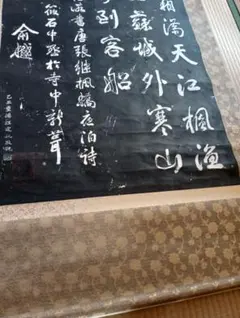 滿天江楓漁
蘇城外寒山
到客船
書唐張繼楓橋夜泊詩
筱石中丞於寺中新葺
俞樾